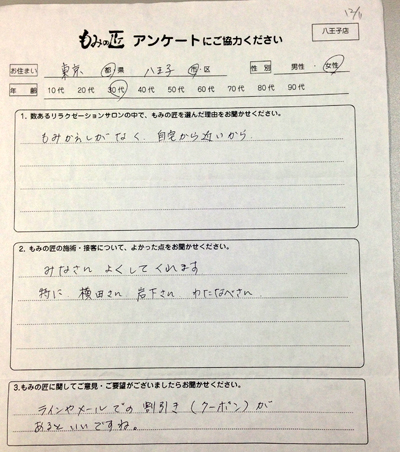 12/11
八王子店
もみの匠 アンケートにご協力ください
お住まい 東京 都・県 八王子 市・区 性別 男性・女性
年齢 10代 20代 30代 40代 50代 60代 70代 80代 90代
1. 数あるリラクゼーションサロンの中で、もみの匠を選んだ理由をお聞かせください。
もみかえしがなく、自宅から近いから
2. もみの匠の施術・接客について、よかった点をお聞かせください。
みなさん よくしてくれます
特に 横田さん 岩下さん わたなべさん
3.もみの匠に関してご意見・ご要望がございましたらお聞かせください。
ラインやメールでの割引き(クーポン)が
あるといいですね。